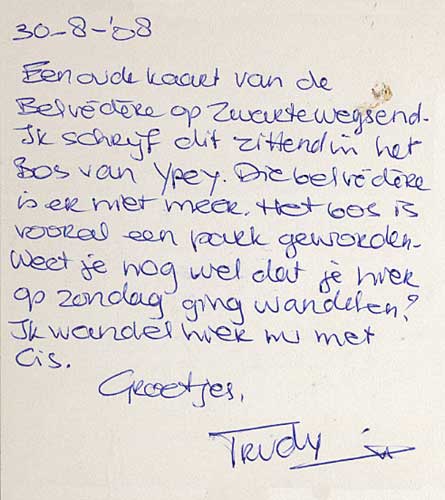 30-8-'08
Een oude kaart van de
Belvédère op Zwartewegsend.
Ik schrijf dit zittend in het
Bos van Ypey. Die belvédère
is er niet meer. Het bos is
vooral een park geworden.
Weet je nog wel dat je hier
op zondag ging wandelen?
Ik wandel hier nu met
Cis.
Groetjes,
Trudy